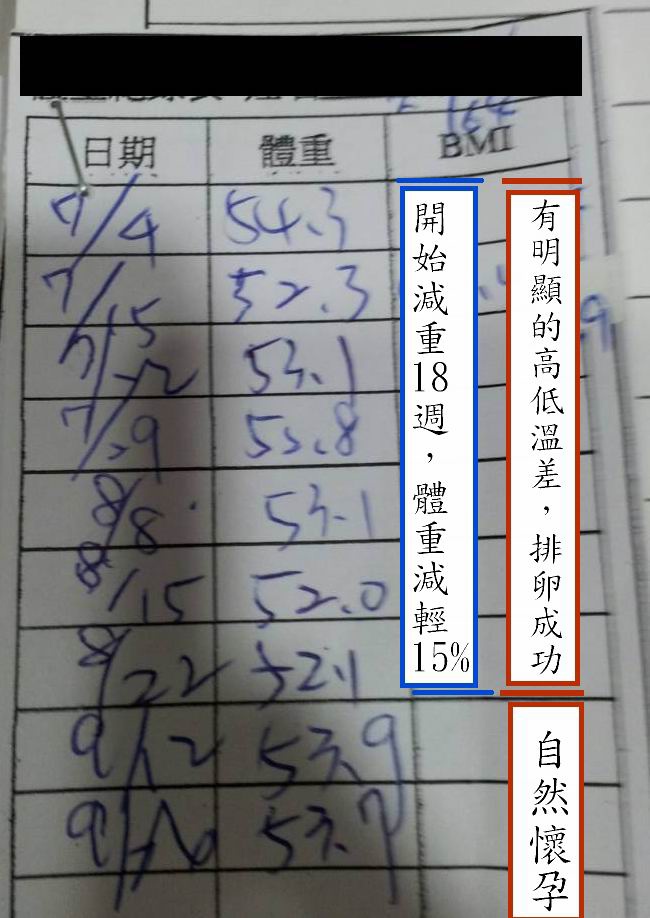 日期 體重 BMI
7/4 54.3
7/15 52.3
7/22 53.1
7/29 53.8
8/8 53.1
8/15 52.0
8/22 52.1
9/12 53.9
53.7
開始減重18週，體重減輕15%
有明顯的高低溫差，排卵成功
自然懷孕